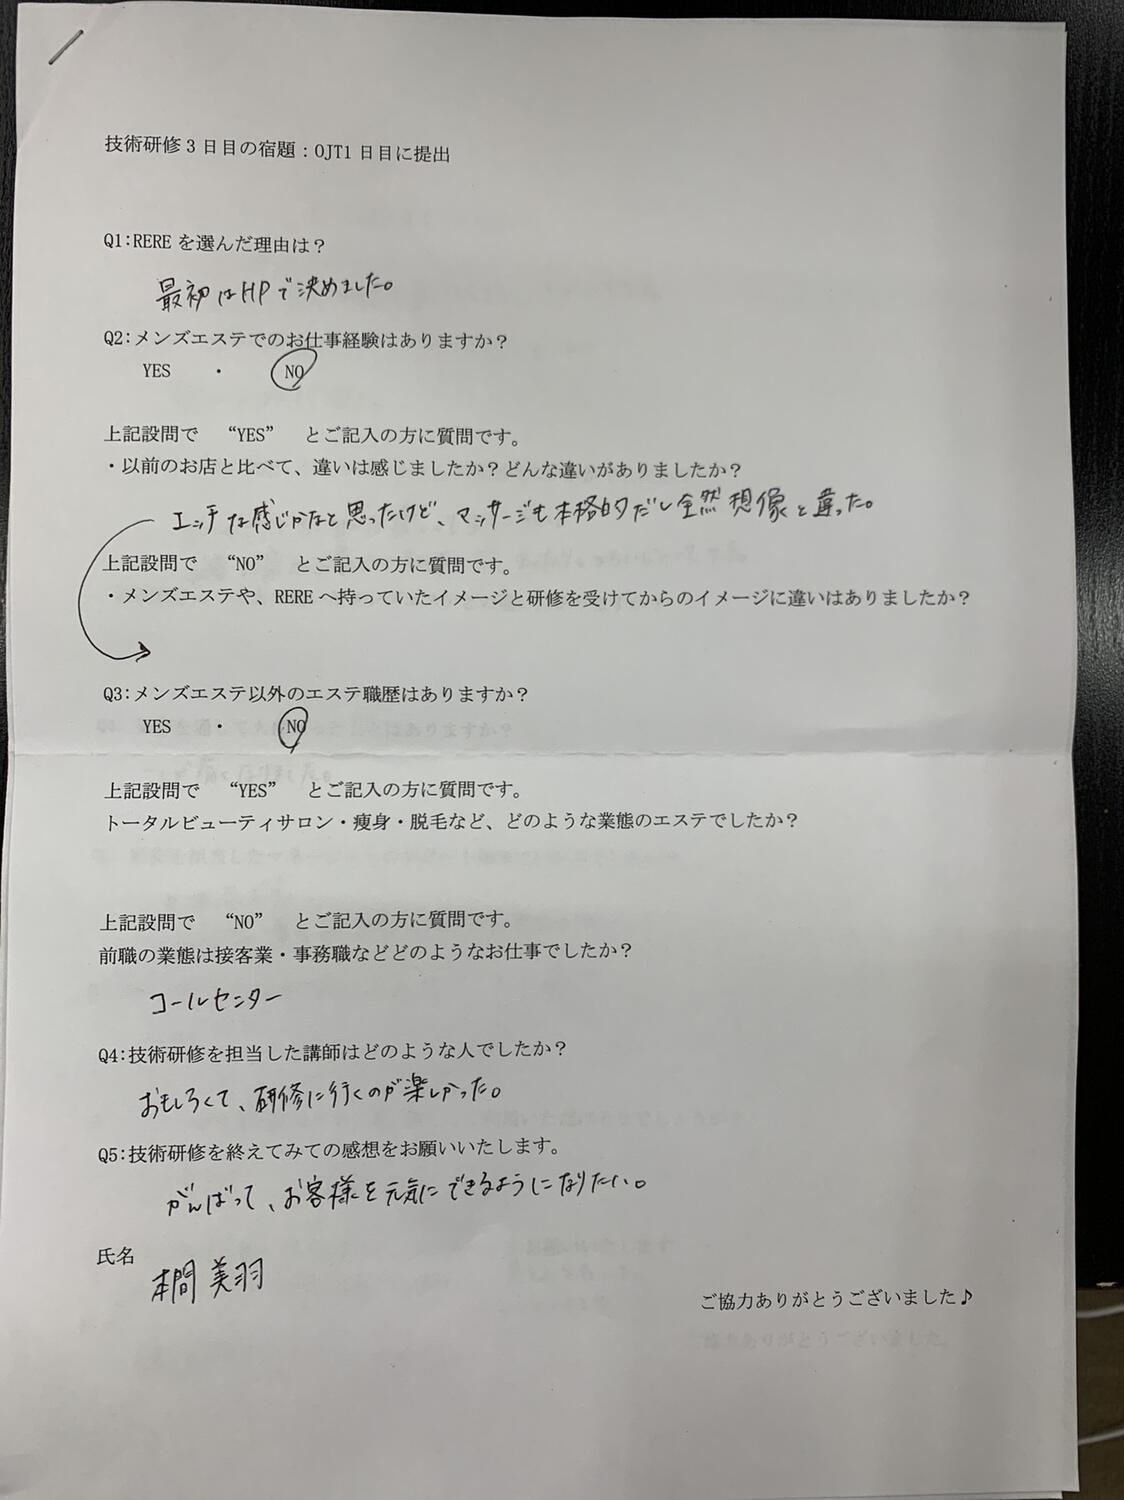 技術研修3日目の宿題：OJT1日目に提出
Q1:REREを選んだ理由は？
最初はHPで決めました。
Q2:メンズエステでのお仕事経験はありますか？
YES ・ NO
上記設問で “YES” とご記入の方に質問です。
・以前のお店と比べて、違いは感じましたか？どんな違いがありましたか？
エッチな感じかなと思ったけど、マッサージも本格的だし全然想像と違った。
上記設問で “NO” とご記入の方に質問です。
・メンズエステや、REREへ持っていたイメージと研修を受けてからのイメージに違いはありましたか？
Q3:メンズエステ以外のエステ職歴はありますか？
YES ・ NO
上記設問で “YES” とご記入の方に質問です。
トータルビューティサロン・痩身・脱毛など、どのような業態のエステでしたか？
上記設問で “NO” とご記入の方に質問です。
前職の業態は接客業・事務職などどのようなお仕事でしたか？
コールセンター
Q4:技術研修を担当した講師はどのような人でしたか？
おもしろくて、研修に行くのが楽しかった。
Q5:技術研修を終えてみての感想をお願いいたします。
がんばって、お客様を元気にできるようになりたい。
氏名
本間 美羽
ご協力ありがとうございました♪